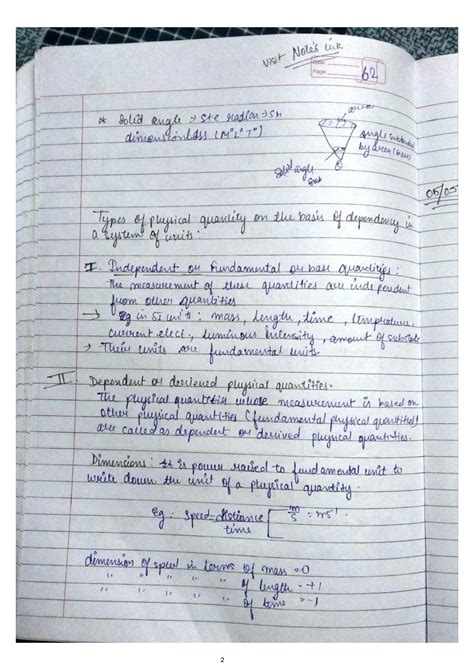 Visit Note's ink
Date
Page 62
* Solid angle :→ Ste radian → Sr
dimensionless (M°L°T°)
area
angle subtended
by area (base)
Solid angle
05/05
Types of physical quantity on the basis of dependency in
a system of units.
I. Independent or Fundamental or base quantities:
the measurement of these quantities are independent
from other quantities
→ Eg in SI units: mass, length, time, temprature,
current elect., luminous intensity, amount of substance
→ Their units are fundamental units.
II. Dependent or derieved physical quantities.
The physical quantities whose measurement is based on
other physical quantities (fundamental physical quantities)
are called as dependent or derived physical quantities.
Dimensions: It is power raised to fundamental unit to
write down the unit of a physical quantity.
Eg: speed = distance/time [ m/s = ms⁻¹
dimension of speed in terms of mass = 0
" " " " " of length = +1
" " " " " of time = -1
2